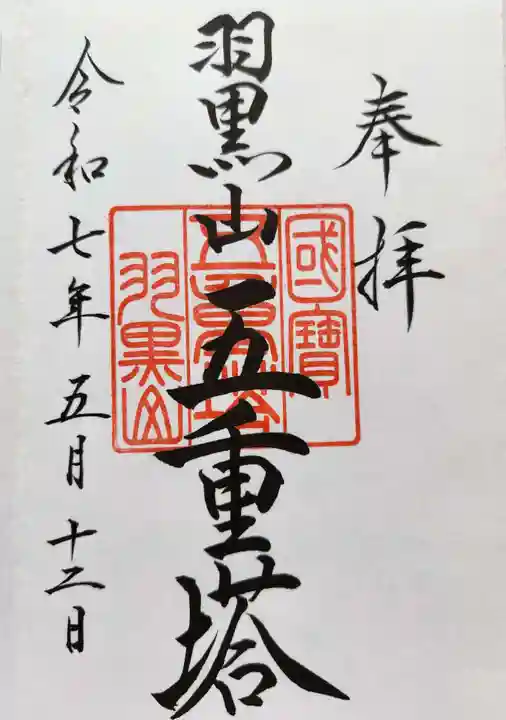 奉拝
羽黒山五重塔
國寶
五重塔
羽黒山
令和七年五月十二日